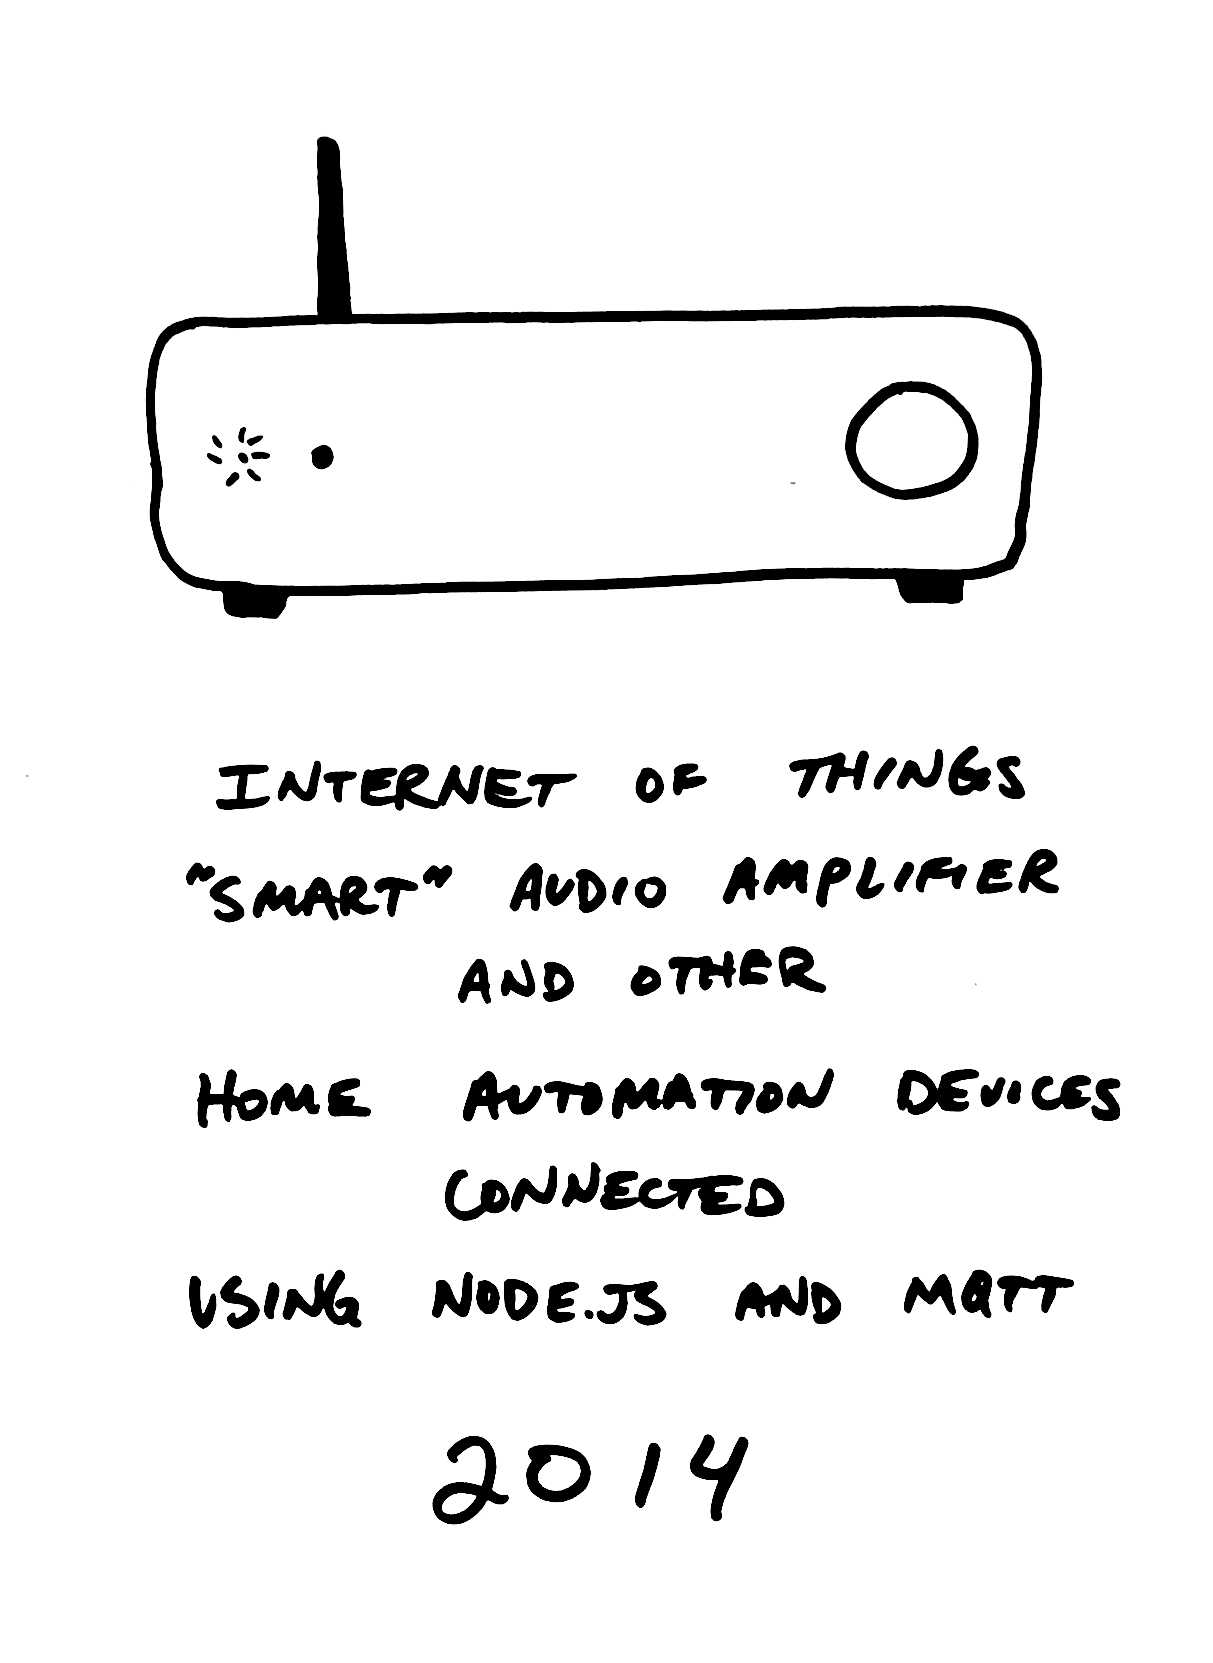 INTERNET OF THINGS
"SMART" AUDIO AMPLIFIER
AND OTHER
HOME AUTOMATION DEVICES
CONNECTED
USING NODE.JS AND MQTT
2014